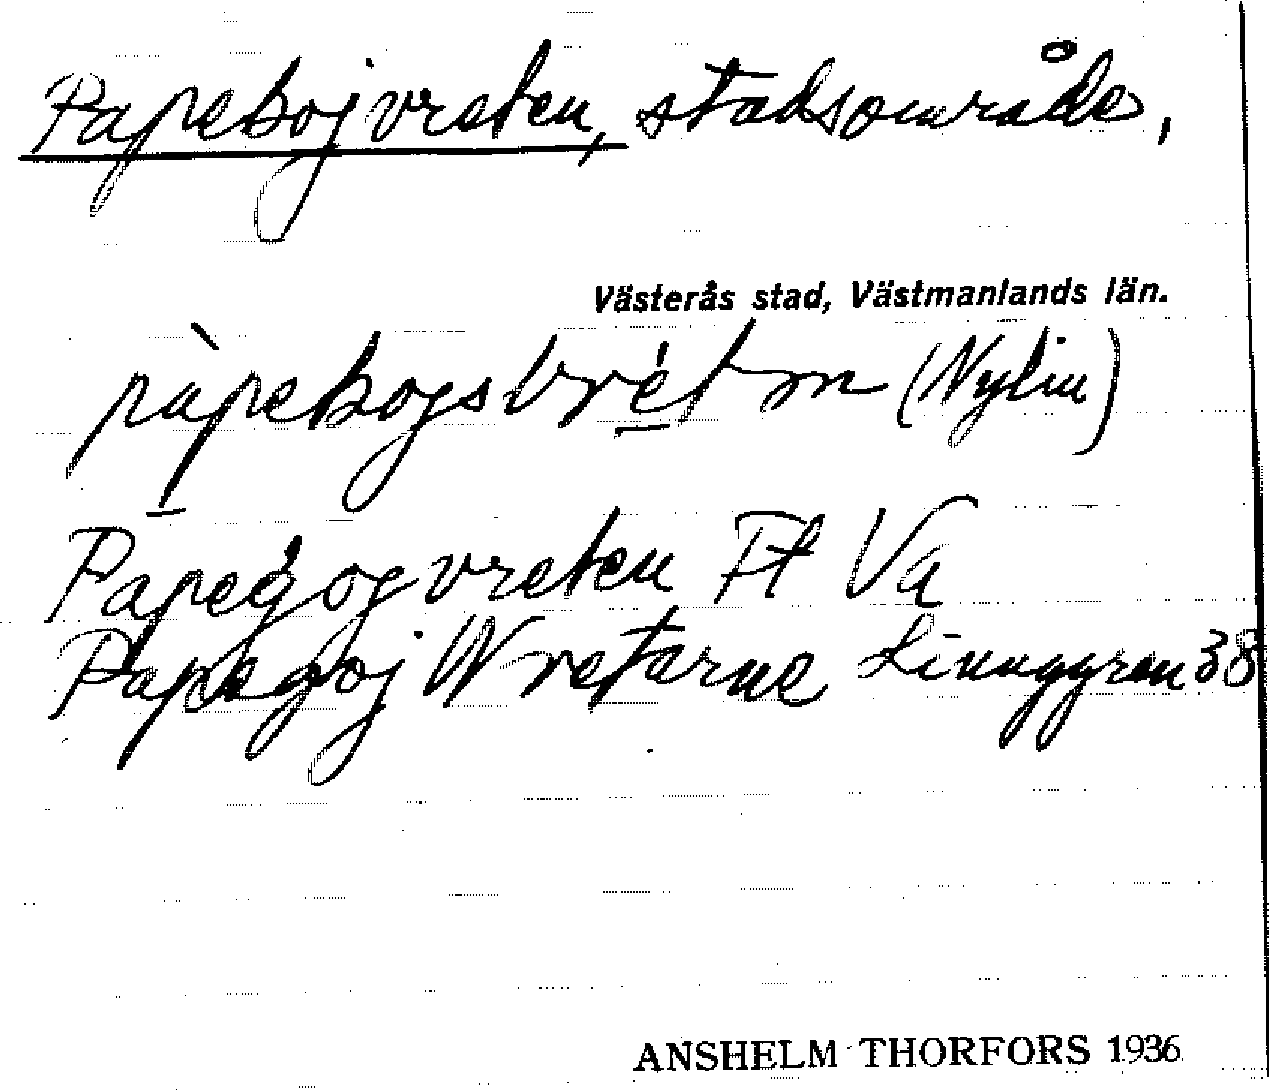 Papebojvreten, stadsområde,
Västerås stad, Västmanlands län.
pàpebogsbrét m (Nylin)
Papegogvreten Ft Va
Papegoj Wretarne Linnggren 38
ANSHELM THORFORS 1936